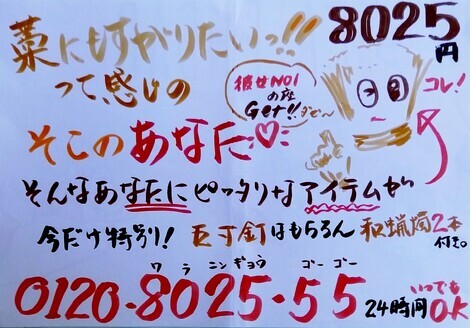 藁にもすがりたいっ!!
って、感じの
8025円
彼女NO1
の座
Get!!だぜ〜
コレ!
そこのあなた♡
そんなあなたにピッタリなアイテムが
今だけ特別! 五寸釘はもちろん 和蝋燭2本付き。
ワラ ニンギョウ ゴーゴー
0120-8025-55
24時間 いつでもOK